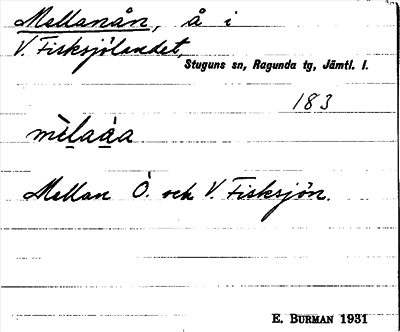 Mellanån, å i
V. Fisksjölandet,
Stuguns sn, Ragunda tg, Jämtl. l.
183
mèla̱a̱̍a
Mellan Ö. och V. Fisksjön.
E. BURMAN 1931